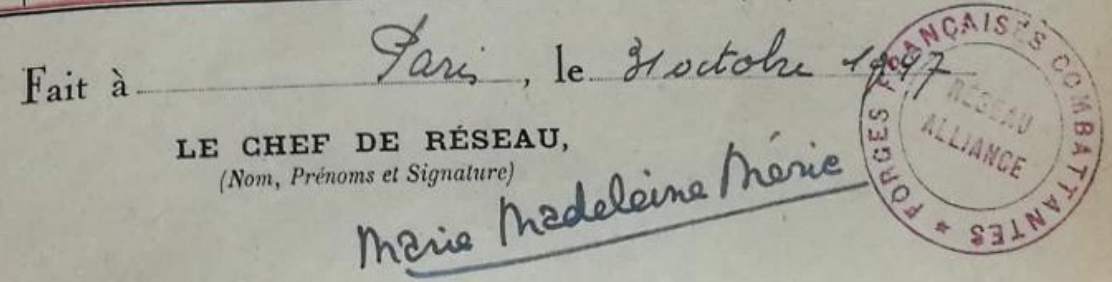 Fait à Paris, le 31 octobre 1947
LE CHEF DE RÉSEAU,
(Nom, Prénoms et Signature)
Marie Madeleine Méric
FORCES FRANÇAISES COMBATTANTES *
RÉSEAU
ALLIANCE